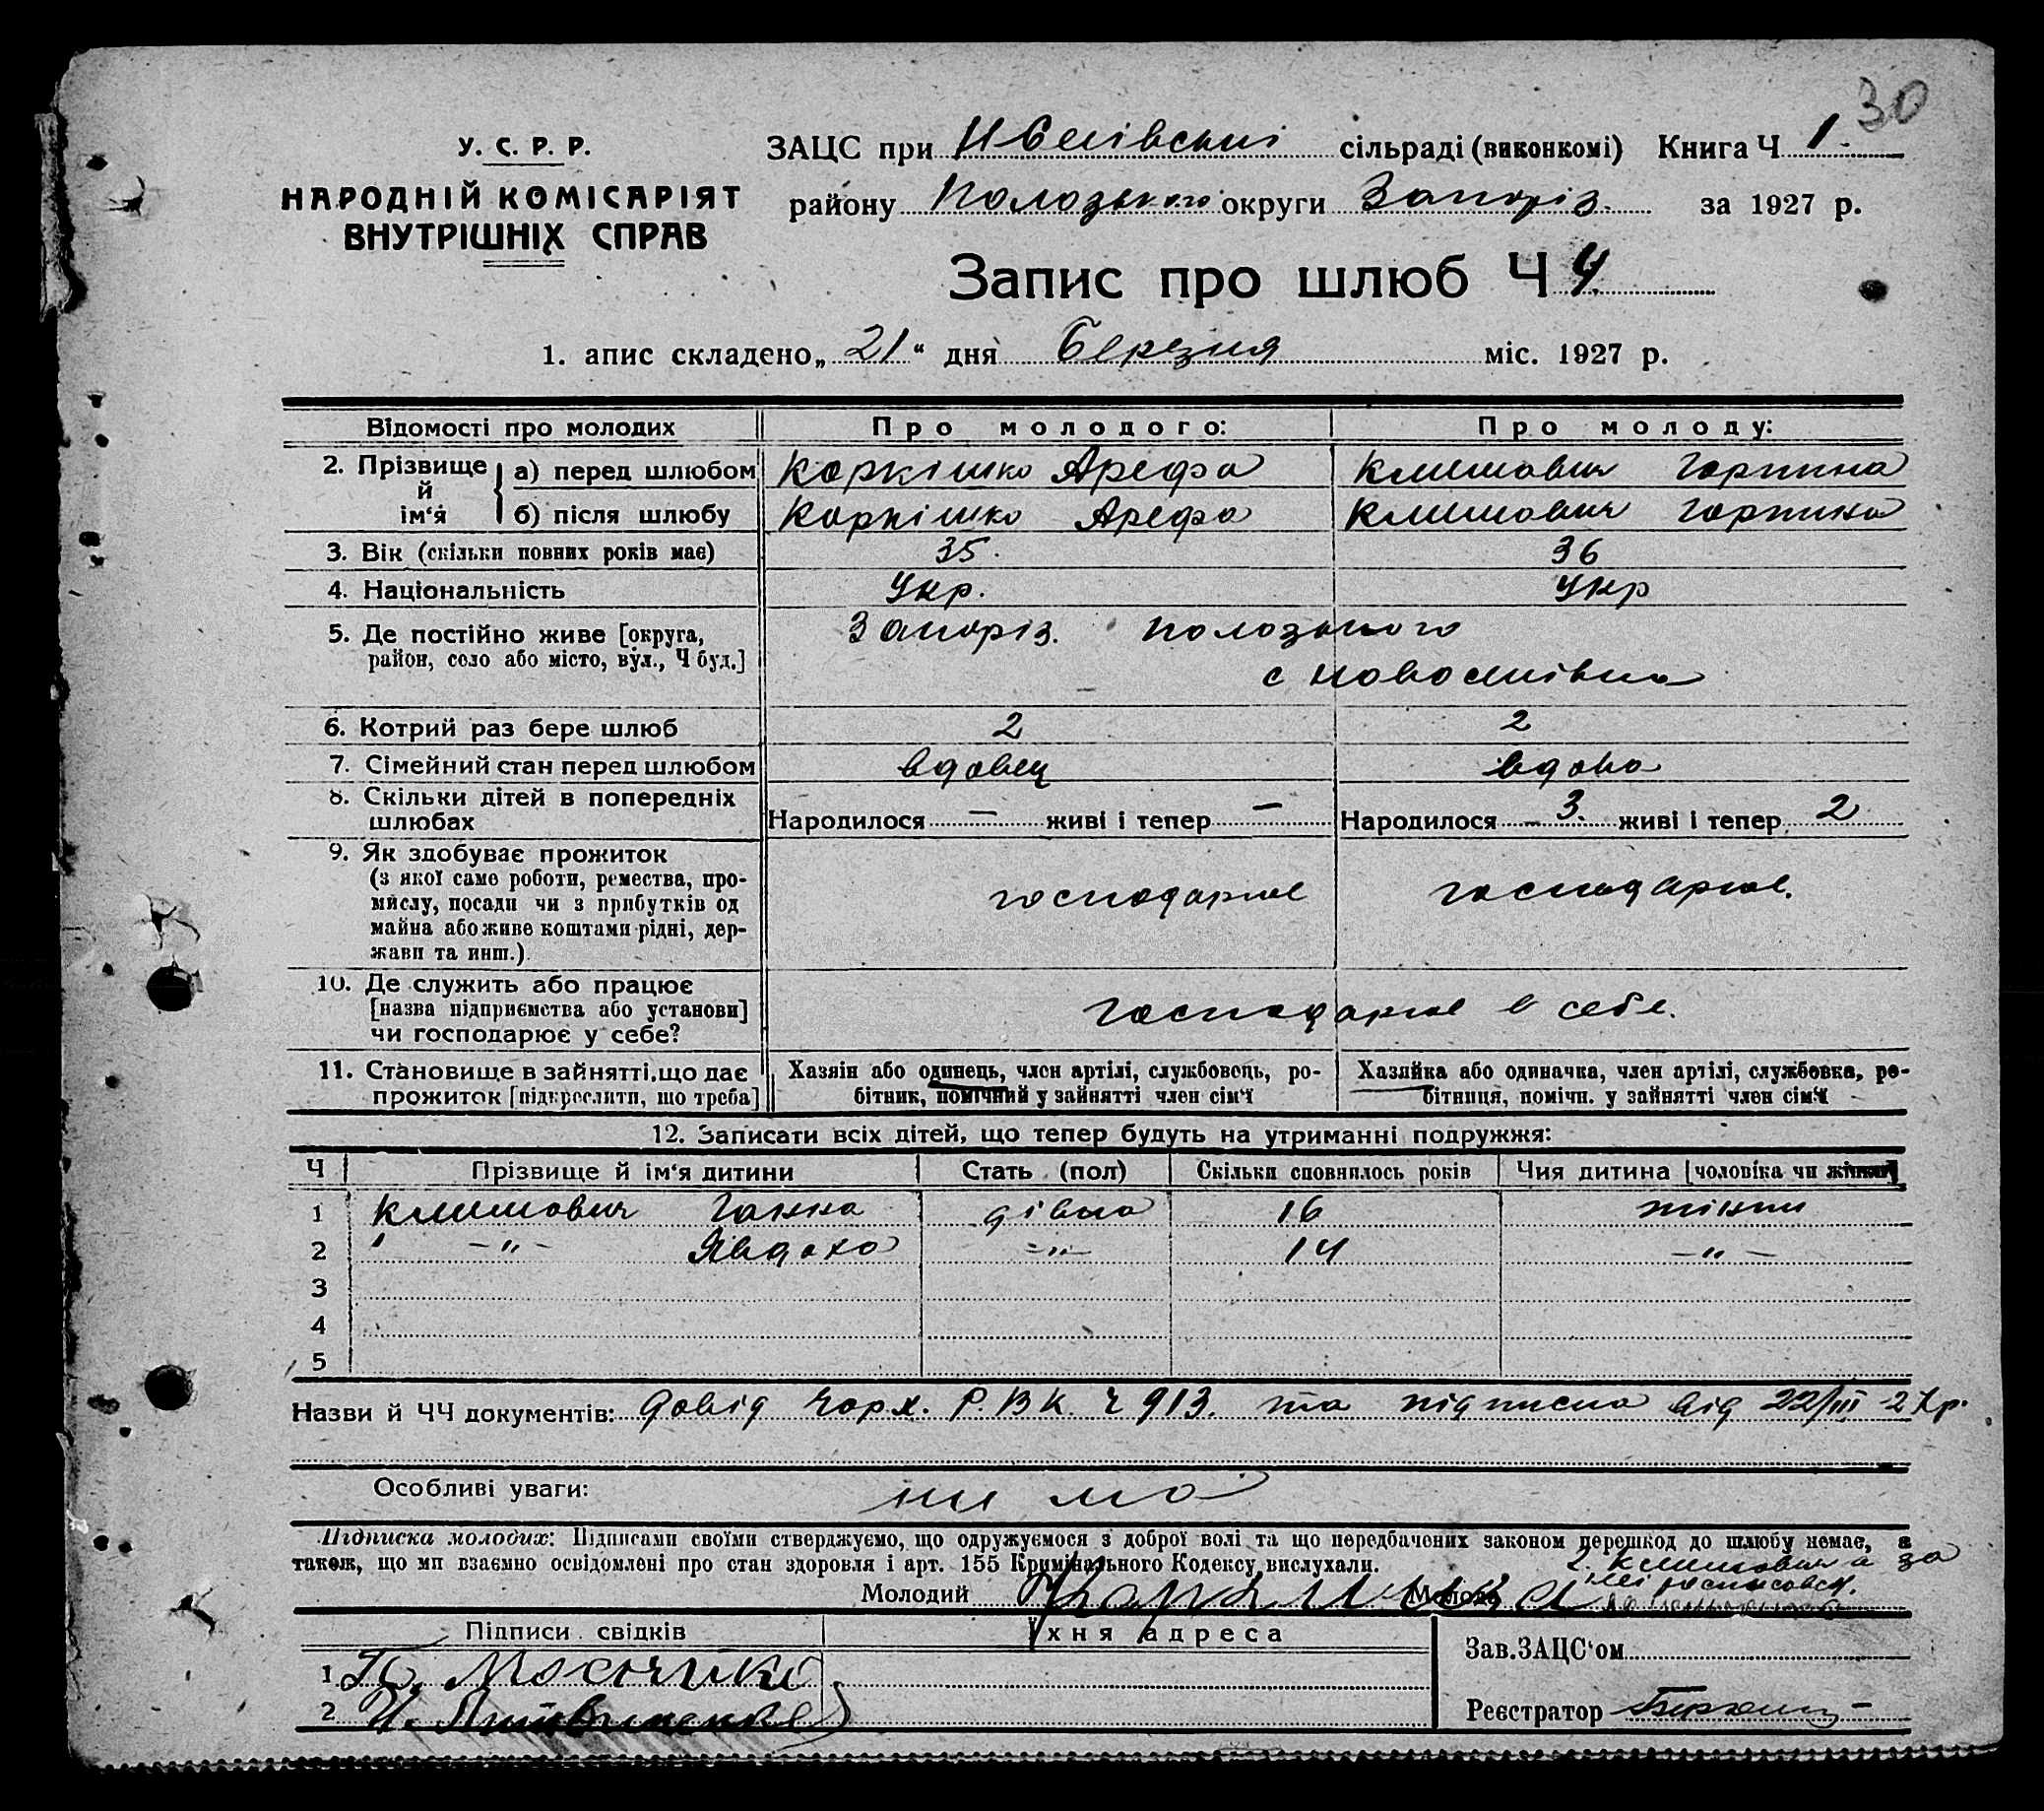 30
У. С. Р. Р.
НАРОДНІЙ КОМІСАРІЯТ
ВНУТРІШНІХ СПРАВ
ЗАЦС при Н Селівській сільраді (виконкомі) Книга Ч 1.
району Пологського округи Запоріз. за 1927 р.
Запис про шлюб Ч 4.
1. апис складено „ 21 “ дня березня міс. 1927 р.
Відомості про молодих Про молодого: Про молоду:
2. Прізвище й ім‘я а) перед шлюбом Коркішко Арефа Климович Горпина
б) після шлюбу Коркішко Арефа Климович Горпина
3. Вік (скільки повних років має) 35. 36
4. Національність Укр. Укр
5. Де постійно живе [округа, Запоріз. Пологського
район, село або місто, вул., Ч буд.] с Новоселівка
6. Котрий раз бере шлюб 2 2
7. Сімейний стан перед шлюбом вдовец вдова
8. Скільки дітей в попередніх
шлюбах Народилося — живі і тепер — Народилося 3. живі і тепер 2
9. Як здобуває прожиток
(з якої само роботи, ремества, про-
мислу, посади чи з прибутків од господарює господарює.
майна або живе коштами рідні, дер-
жави та инш.)
10. Де служить або працює
[назва підприємства або установи] господарює в себе.
чи господарює у себе?
11. Становище в зайнятті, що дає Хазяїн або одинець, член артілі, службовець, ро- Хазяйка або одиначка, член артілі, службовка, ро-
прожиток [підкреслити, що треба] бітник, помічний у зайнятті член сім‘ї бітниця, помічн. у зайнятті член сім‘ї
12. Записати всіх дітей, що тепер будуть на утриманні подружжя:
Ч Прізвище й ім‘я дитини Стать (пол) Скільки сповнилось років Чия дитина [чоловіка чи жінки]
1 Климович Ганна дівка 16 жінки
2 —„— Явдоха —„— 14 —„—
3
4
5
Назви й ЧЧ документів: довід. Р.В.К. ч 913. та підписка від 22/III 27 р.
Особливі уваги: ни ма
Підписка молодих: Підписами своїми стверджуємо, що одружуємося з доброї волі та що передбачених законом перешкод до шлюбу немає, а
також, що ми взаємно освідомлені про стан здоровля і арт. 155 Кримінального Кодексу вислухали. Климович а за
Молодий Молода
Підписи свідків Їхня адреса Зав. ЗАЦС‘ом
1
2 Реєстратор